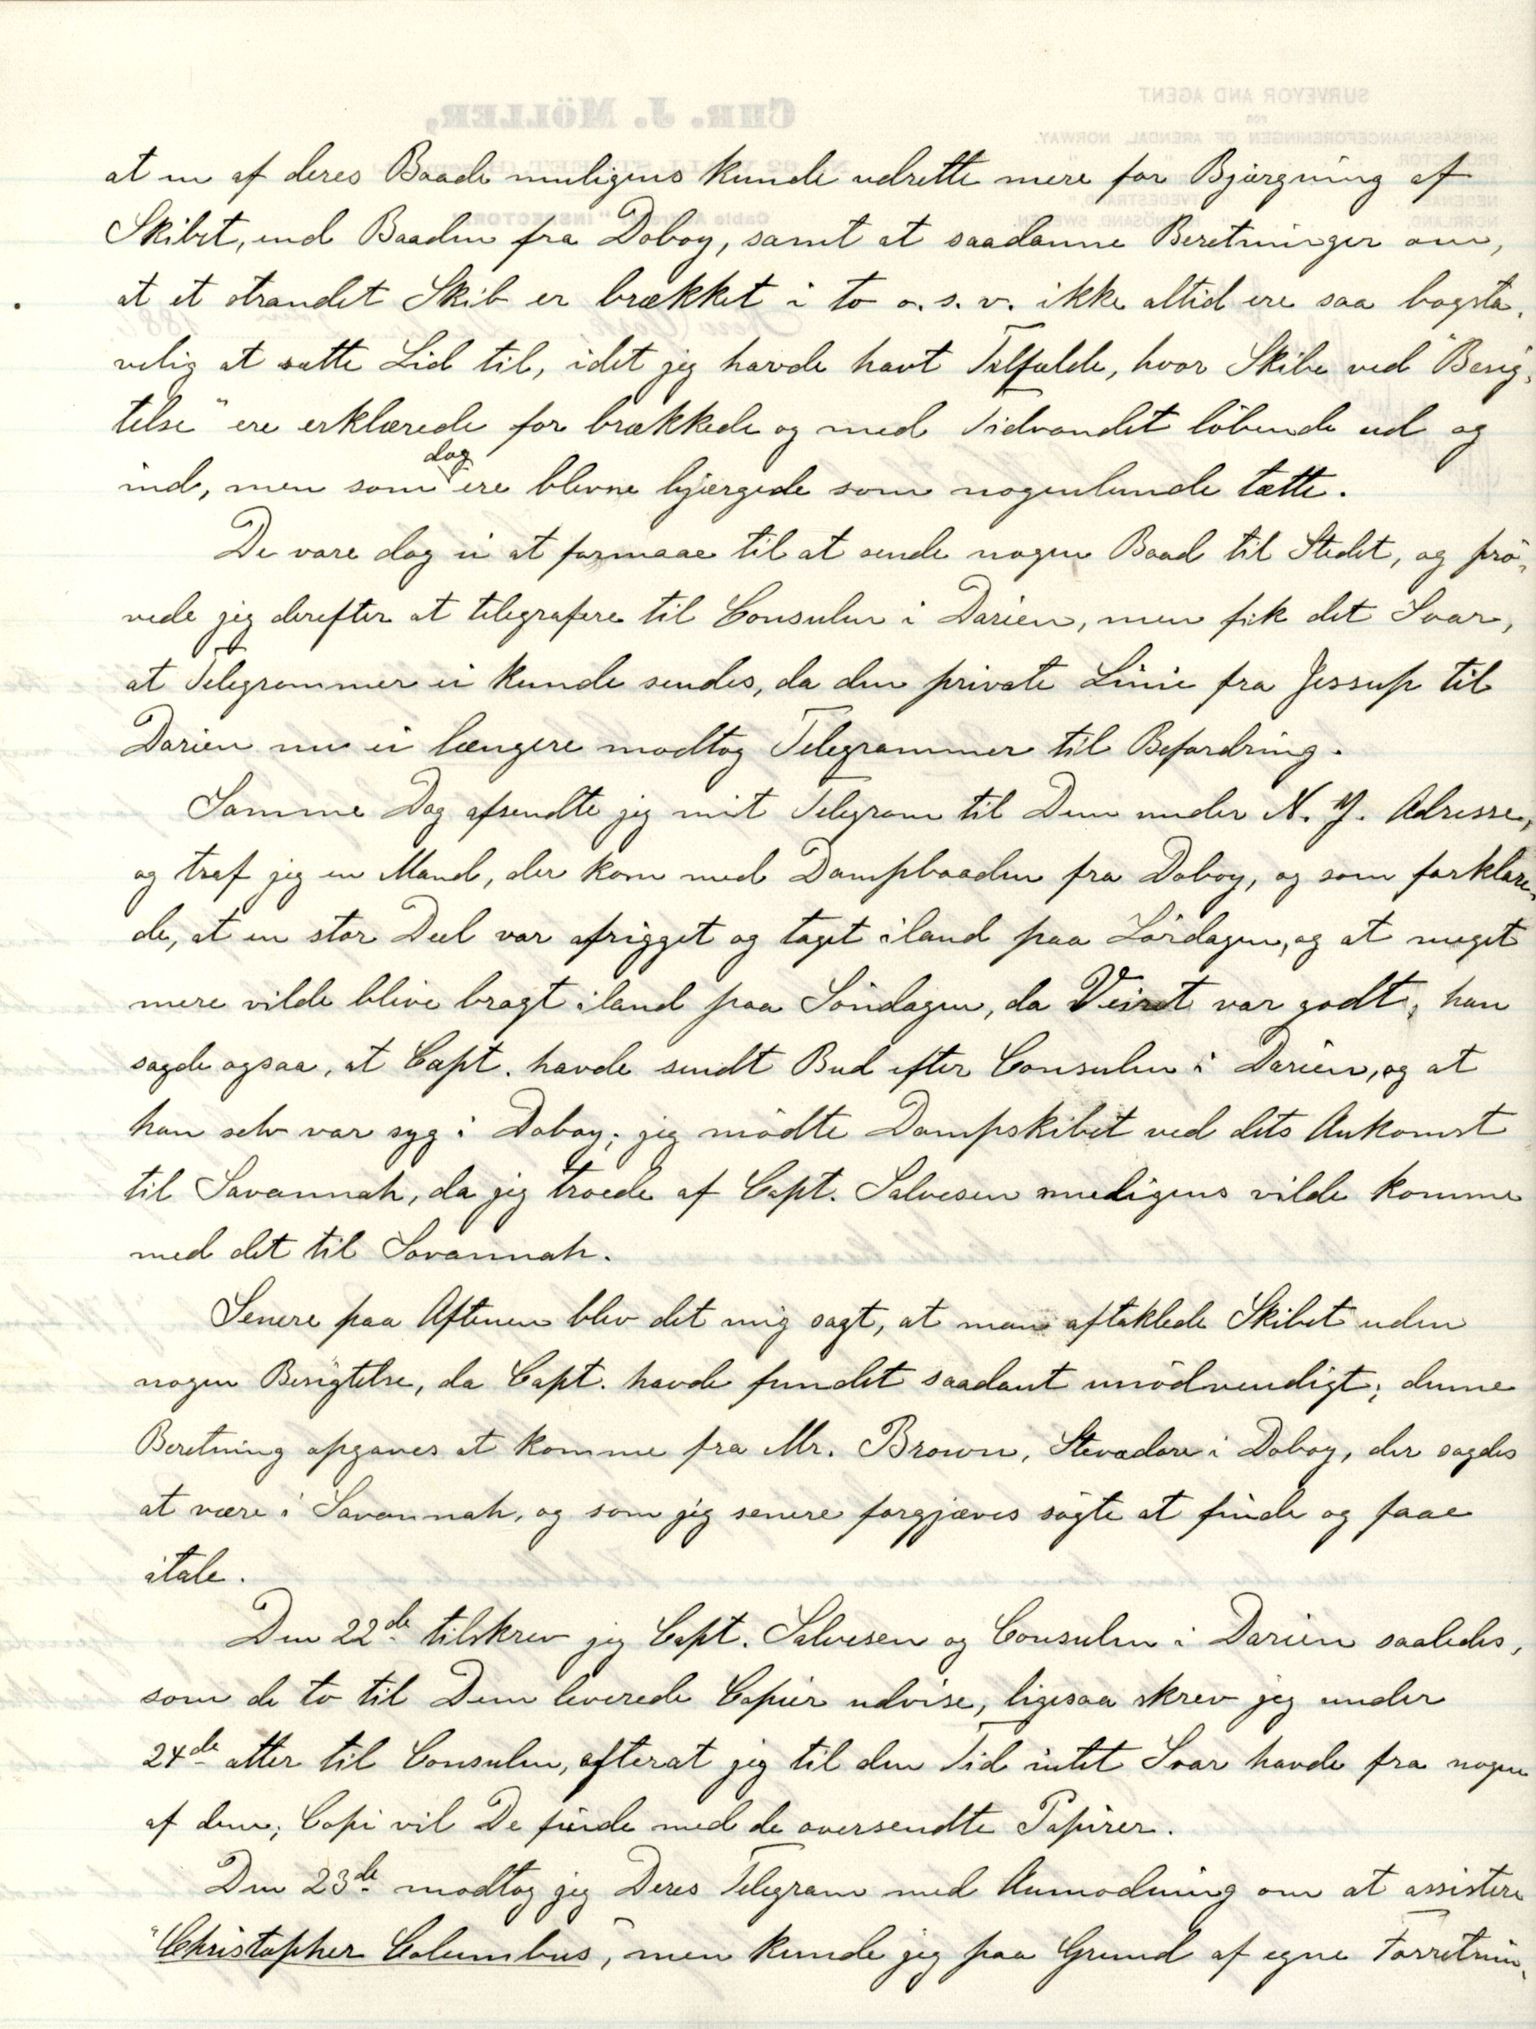 at en af deres Baade muligens kunde udrette mere for Bjærgning af
Skibet, end Baaden fra Doboy, samt at saadanne Beretninger om,
at et strandet Skib er brækket i to o.s.v. ikke altid ere saa bogsta,
velig at sætte Lid til, idet jeg havde havt Tilfælde, hvor Skibe ved "Besig,
telse" ere erklærede for brækkede og med Tidvandet löbende ud og
ind, men som dog ere blevne bjærgede som nogenlunde tætte.
De vare dog ei at formaae til at sende nogen Baad til Stedet, og prö,
vede jeg derefter at telegrafere til Consulen i Darien, men fik det Svar,
at Telegrammer ei kunde sendes, da den private Linie fra Jessup til
Darien nu ei længere modtog Telegrammer til Befordring.
Samme Dag afsendte jeg mit Telegram til Dem under N. Y. Adresse,
og traf jeg en Mand, der kom med Dampbaaden fra Doboy, og som forklare,
de, at en stor Deel var afrigget og taget iland paa Lördagen, og at meget
mere vilde blive bragt iland paa Söndagen, da Veiret var godt; han
sagde ogsaa, at Capt. havde sendt Bud efter Consulen i Darien, og at
han selv var syg i Doboy; jeg mödte Dampskibet ved dets Ankomst
til Savannah, da jeg troede af Capt. Salvesen muligens vilde komme
med det til Savannah.
Senere paa Aftenen blev det mig sagt, at man aftaklede Skibet uden
nogen Besigtelse, da Capt. havde fundet saadant unödvendigt; denne
Beretning opgaves at komme fra Mr. Brown, Stevadore i Doboy, der sagdes
at være i Savannah, og som jeg senere forgjæves sögte at finde og faae
itale.
Den 22de tilskrev jeg Capt. Salvesen og Consulen i Darien saaledes,
som de to til Dem leverede Copier udvise, ligesaa skrev jeg under
24de atter til Consulen, efterat jeg til den Tid intet Svar havde fra nogen
af dem; Copi vil De finde med de oversendte Papirer.
Den 23de modtog jeg Deres Telegram med Anmodning om at assistere
"Christopher Columbus", men kunde jeg paa Grund af egne Forretnin,